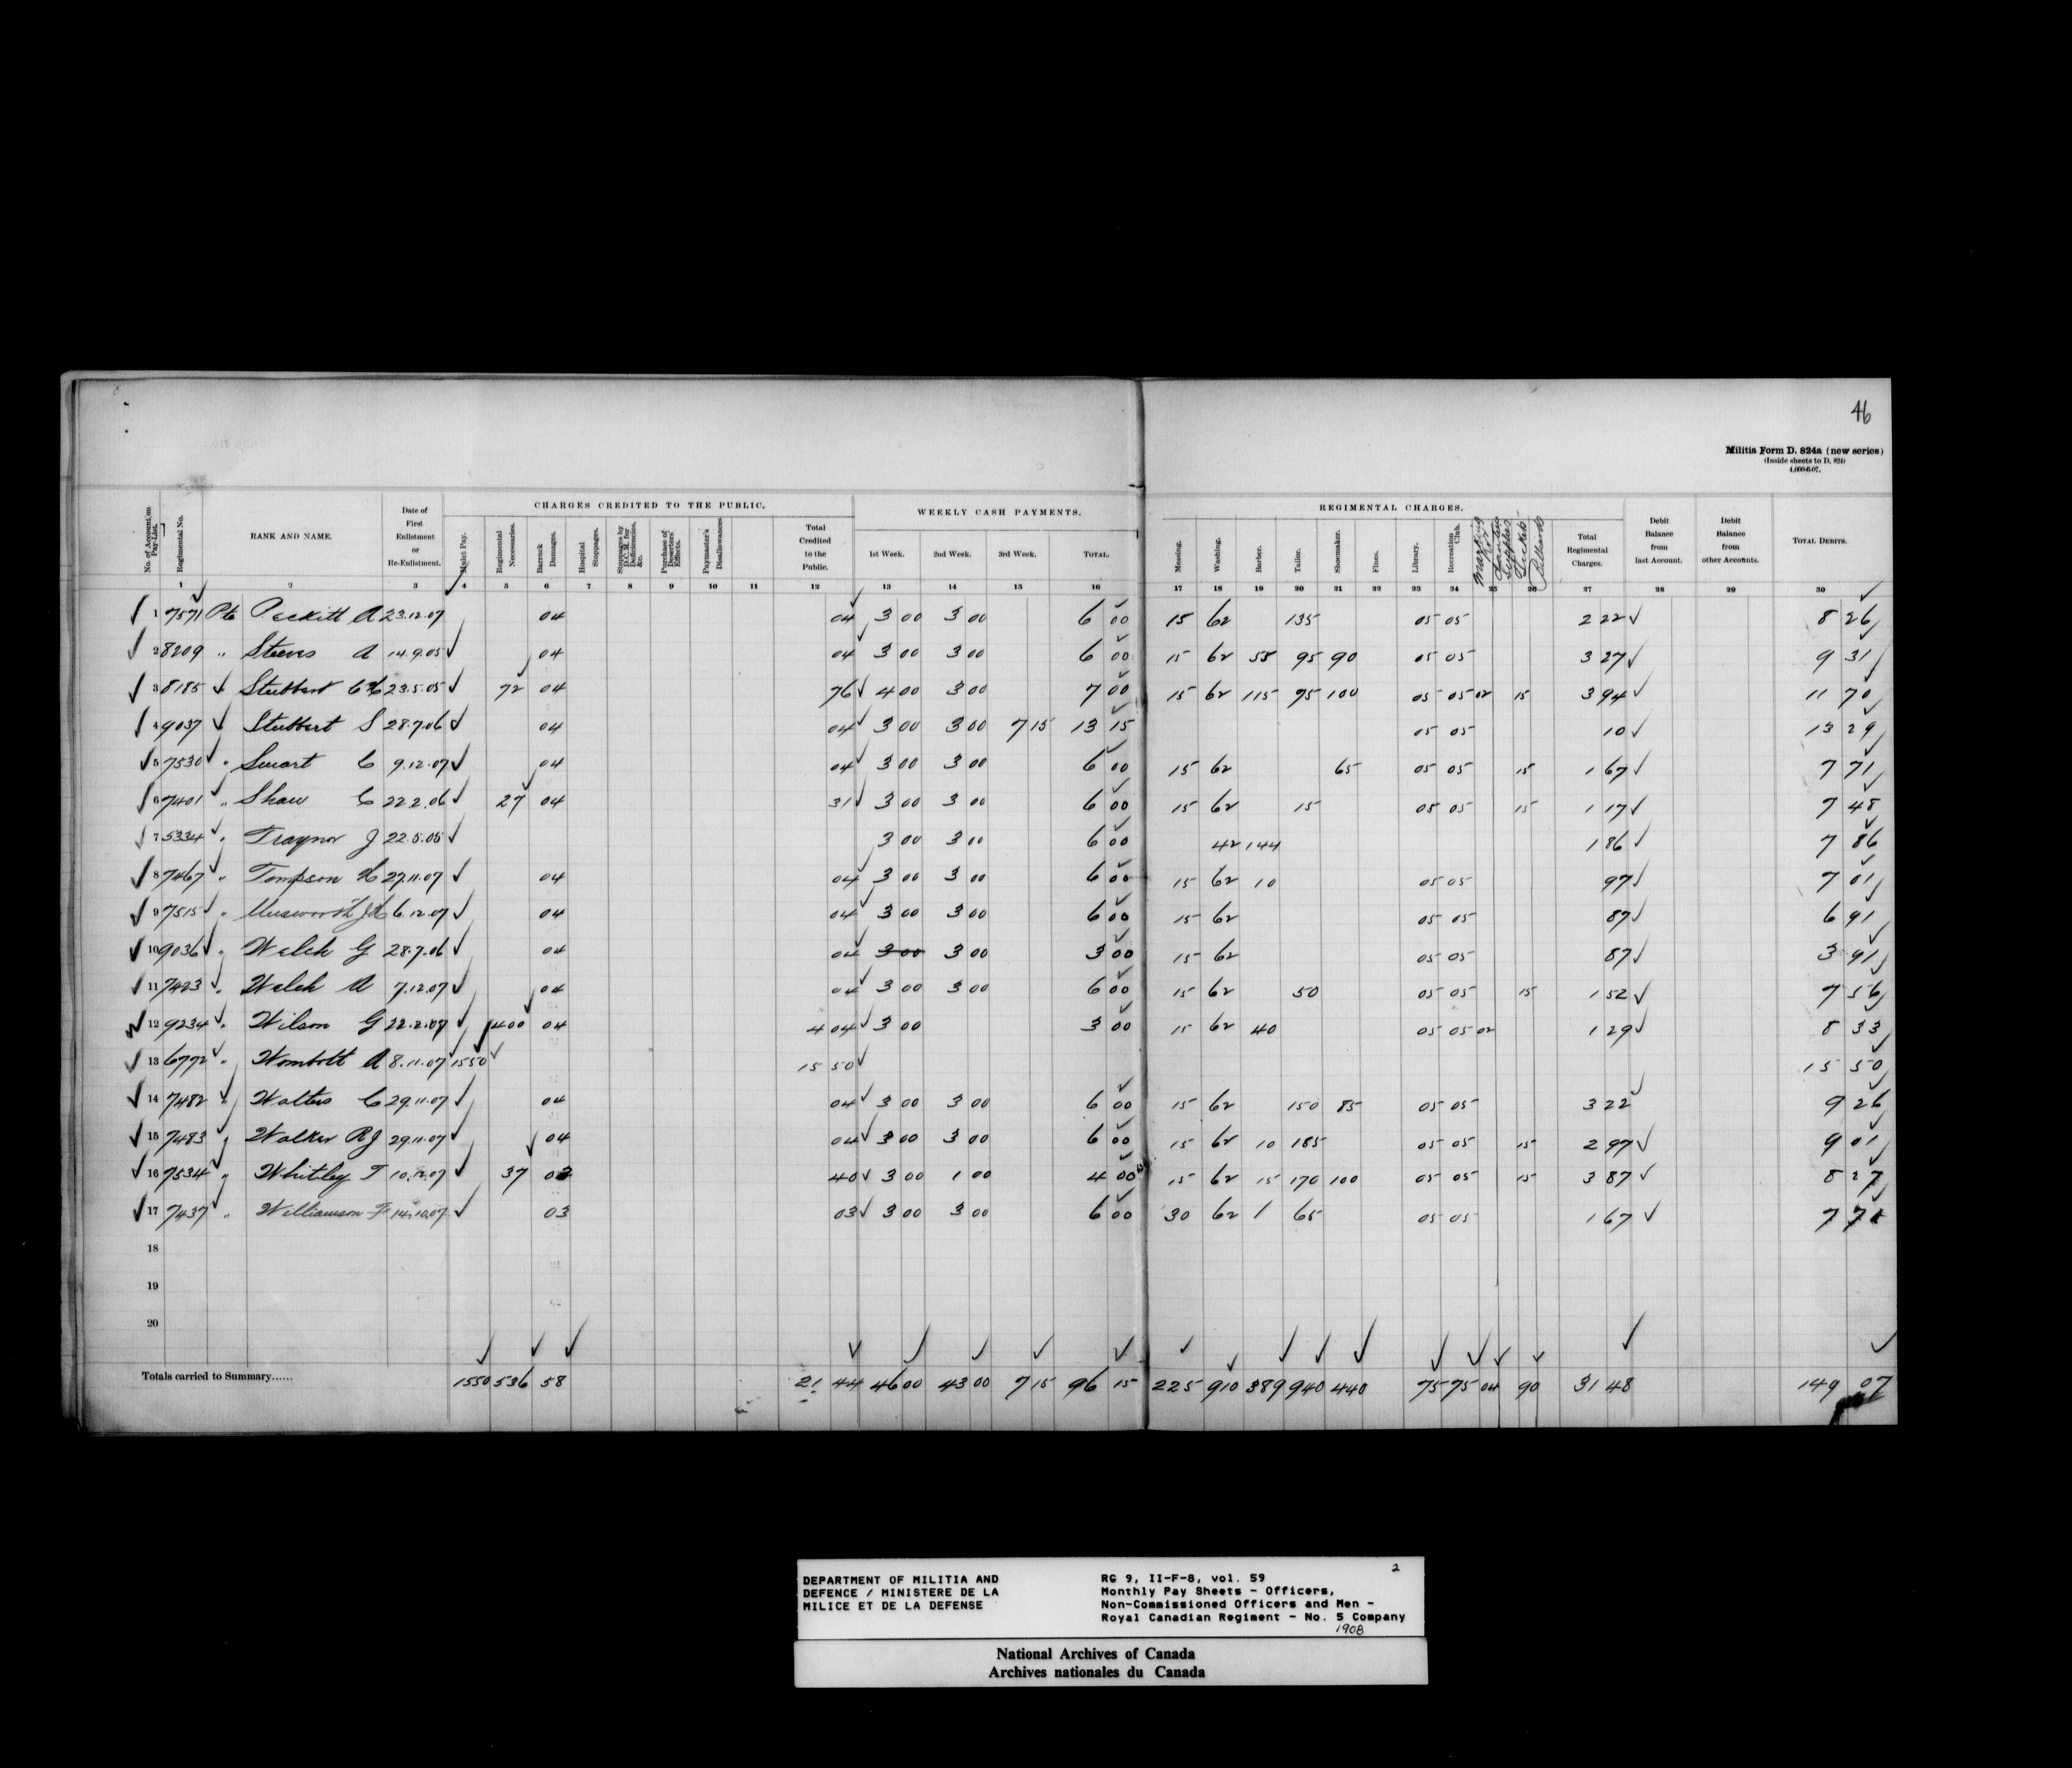 46
Militia Form D. 824a (new series)
(Inside sheets to D. 824)
1,000-6-07.
No. of Account on Pay-List. Regimental No. RANK AND NAME. Date of First Enlistment or Re-Enlistment. CHARGES CREDITED TO THE PUBLIC. WEEKLY CASH PAYMENTS. REGIMENTAL CHARGES. Debit Balance from last Account. Debit Balance from other Accounts. TOTAL DEBITS.
Mulct Pay. Regimental Necessaries. Barrack Damages. Hospital Stoppages. Stoppages by D.C.M. for Deficiencies, &c. Purchase of Deserters' Effects. Paymaster's Disallowances Total Credited to the Public. 1st Week. 2nd Week. 3rd Week. TOTAL. Messing. Washing. Barber. Tailor. Shoemaker. Fines. Library. Recreation Club. Marking Kit Canteen Supplies Tickets Billiards Total Regimental Charges.
1 2 3 4 5 6 7 8 9 10 11 12 13 14 15 16 17 18 19 20 21 22 23 24 25 26 27 28 29 30
1 7571 Pte Peckitt A 23.12.07 04 04 3 00 3 00 6 00 15 62 135 05 05 2 22 8 26
2 8209 " Steeves A 14.9.05 04 04 3 00 3 00 6 00 15 62 55 95 90 05 05 3 27 9 31
3 8185 " Stubbert C H 23.5.05 72 04 76 4 00 3 00 7 00 15 62 115 95 100 05 05 02 15 3 94 11 70
4 9037 " Stubbert S 28.7.06 04 04 3 00 3 00 7 15 13 15 05 05 10 13 29
5 7530 " Smart C 9.12.07 04 04 3 00 3 00 6 00 15 62 65 05 05 15 1 67 7 71
6 7401 " Shaw C 22.2.06 27 04 31 3 00 3 00 6 00 15 62 15 05 05 15 1 17 7 48
7 5334 " Traynor J 22.5.05 3 00 3 00 6 00 42 144 1 86 7 86
8 7467 " Tompson H 27.11.07 04 04 3 00 3 00 6 00 15 62 10 05 05 97 7 01
9 7515 " J H 6.12.07 04 04 3 00 3 00 6 00 15 62 05 05 87 6 91
10 9036 " Welch G 28.7.06 04 04 3 00 3 00 3 00 15 62 05 05 87 3 91
11 7423 " Welch A 7.12.07 04 04 3 00 3 00 6 00 15 62 50 05 05 15 1 52 7 56
12 9234 " Wilson G 22.2.07 400 04 4 04 3 00 3 00 15 62 40 05 05 02 1 29 8 33
13 6772 " Wombolt A 8.11.07 1550 15 50 15 50
14 7482 " Walters C 29.11.07 04 04 3 00 3 00 6 00 15 62 150 85 05 05 3 22 9 26
15 7483 " Walker R J 29.11.07 04 04 3 00 3 00 6 00 15 62 10 185 05 05 15 2 97 9 01
16 7534 " Whitley T 10.12.07 37 03 40 3 00 1 00 4 00 15 62 15 170 100 05 05 15 3 87 8 27
17 7437 " Williamson F 14.10.07 03 03 3 00 3 00 6 00 30 62 / 65 05 05 1 67 7 70
18
19
20
Totals carried to Summary...... 1550 536 58 21 44 46 00 43 00 7 15 96 15 225 910 389 940 440 75 75 04 90 31 48 149 07
DEPARTMENT OF MILITIA AND
DEFENCE / MINISTERE DE LA
MILICE ET DE LA DEFENSE
2
RG 9, II-F-8, vol. 59
Monthly Pay Sheets - Officers,
Non-Commissioned Officers and Men -
Royal Canadian Regiment - No. 5 Company
1908
National Archives of Canada
Archives nationales du Canada